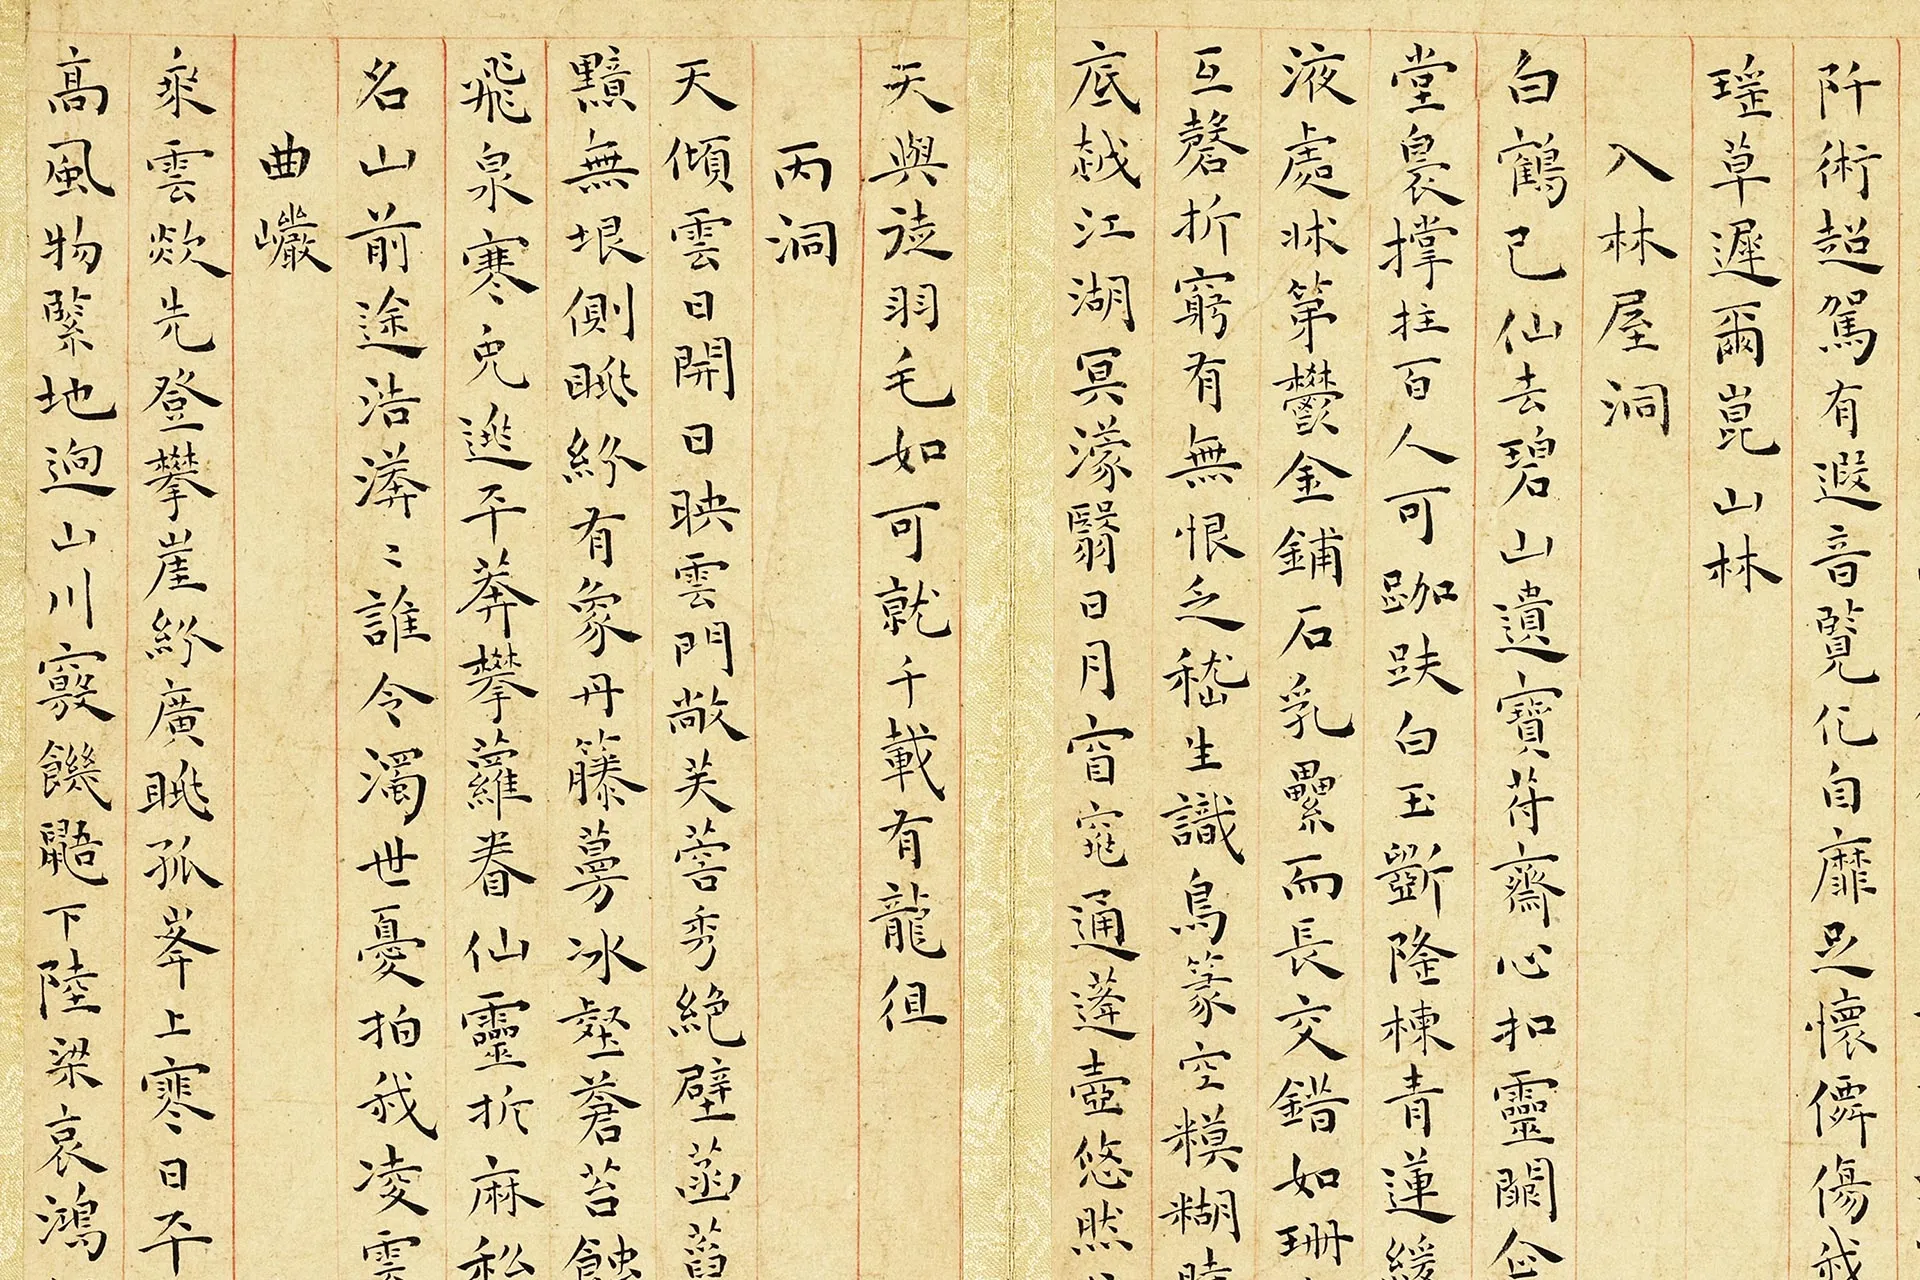 阡術超駕有遐音覽化自靡足懷儛傷我
瑶草遲爾崑山林
入林屋洞
白鶴已仙去碧山遺寶苻齋心扣靈關
堂裊撑拄百人可跏趺白玉斵隆棟青蓮緩
液處牀第鬱金鋪石乳纍而長交錯如珊
互磬折窮有無恨乏嵇生識鳥篆空糢糊
底越江湖冥濛翳日月窅窕通蓬壺悠然
天與徒羽毛如可就千載有龍徂
丙洞
天傾雲日開日映雲門敞芙蓉秀絕壁菡萏
黯無垠側眺紛有象丹籐蔓冰壑蒼苔蝕
飛泉寒兔逃平莽攀蘿眷仙靈折麻
名山前途浩漭〻誰令濁世憂拍我凌雲
曲巘
乘雲欻先登攀崖紛廣眺孤峯上寒日平
高風物縈地迥山川竅饑鼯下陸梁哀鴻